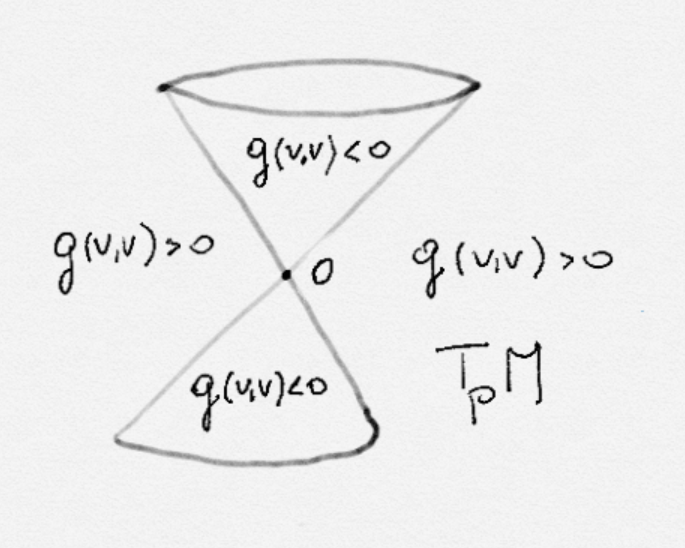 g(v,v)<0
g(v,v)>0
0
g(v,v)>0
g(v,v)<0
TpM